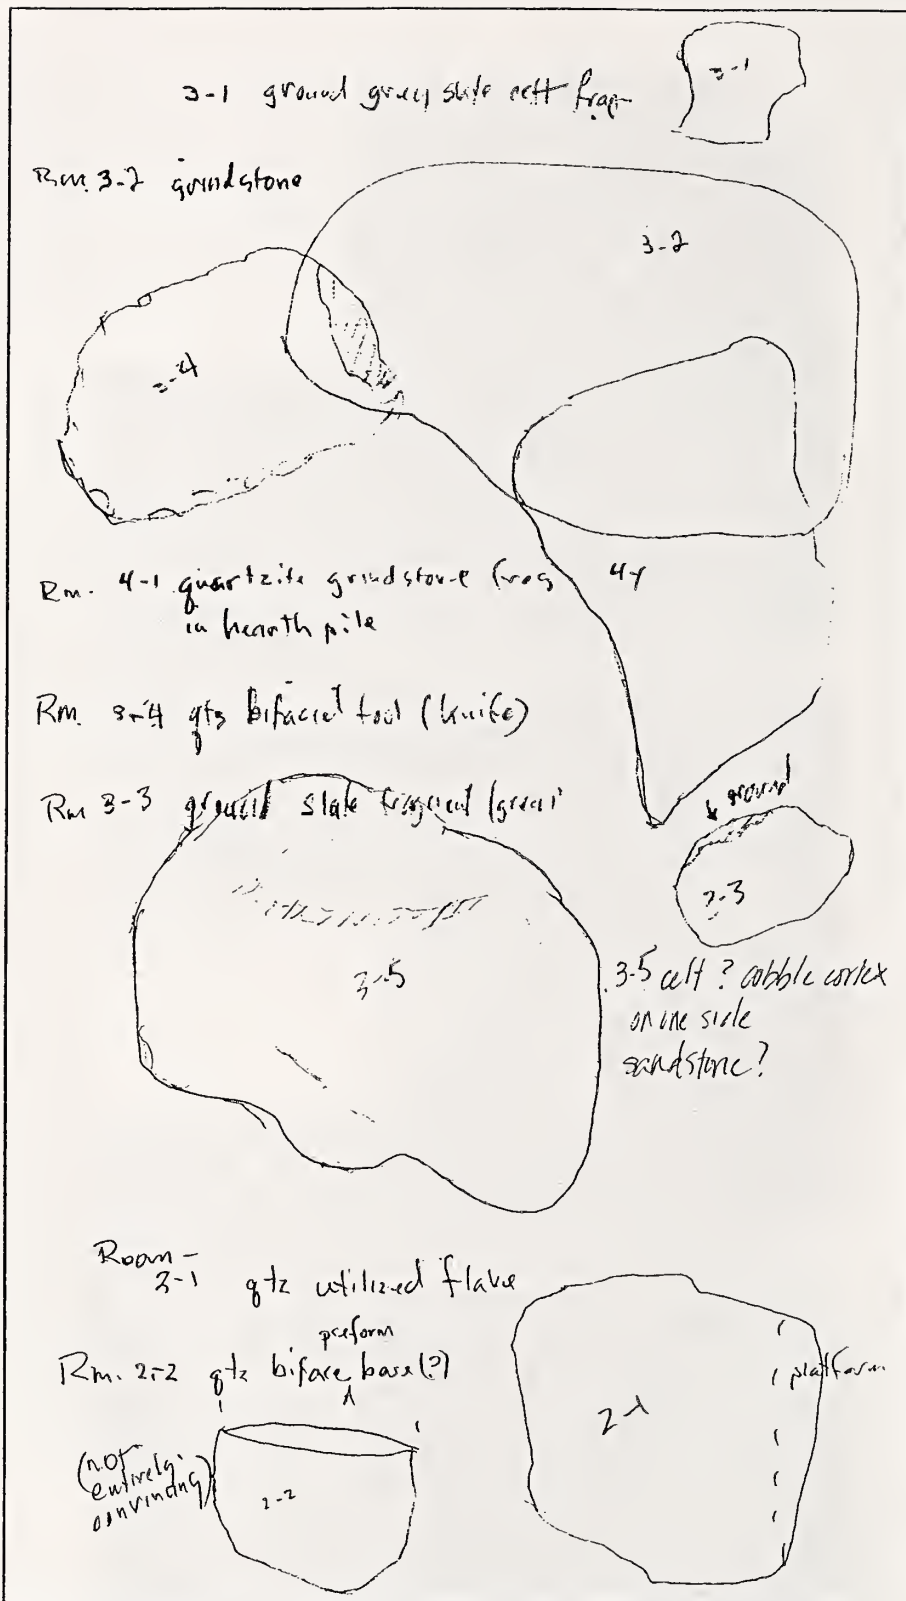 3-1 ground grey slate celt frag
3-1
Rm. 3-2 grindstone
3-2
3-4
Rm. 4-1 quartzite grindstone frag
in hearth pile
4-1
Rm. 3-4 qtz bifacial tool (knife)
Rm 3-3 ground slate fragment (grey)
ground
3-3
3-5
3-5 celt? cobble cortex
on one side
sandstone?
Room-
2-1 qtz utilized flake
preform
Rm. 2-2 qtz biface ^ base (?)
platform
2-1
(not
entirely
convincing)
2-2